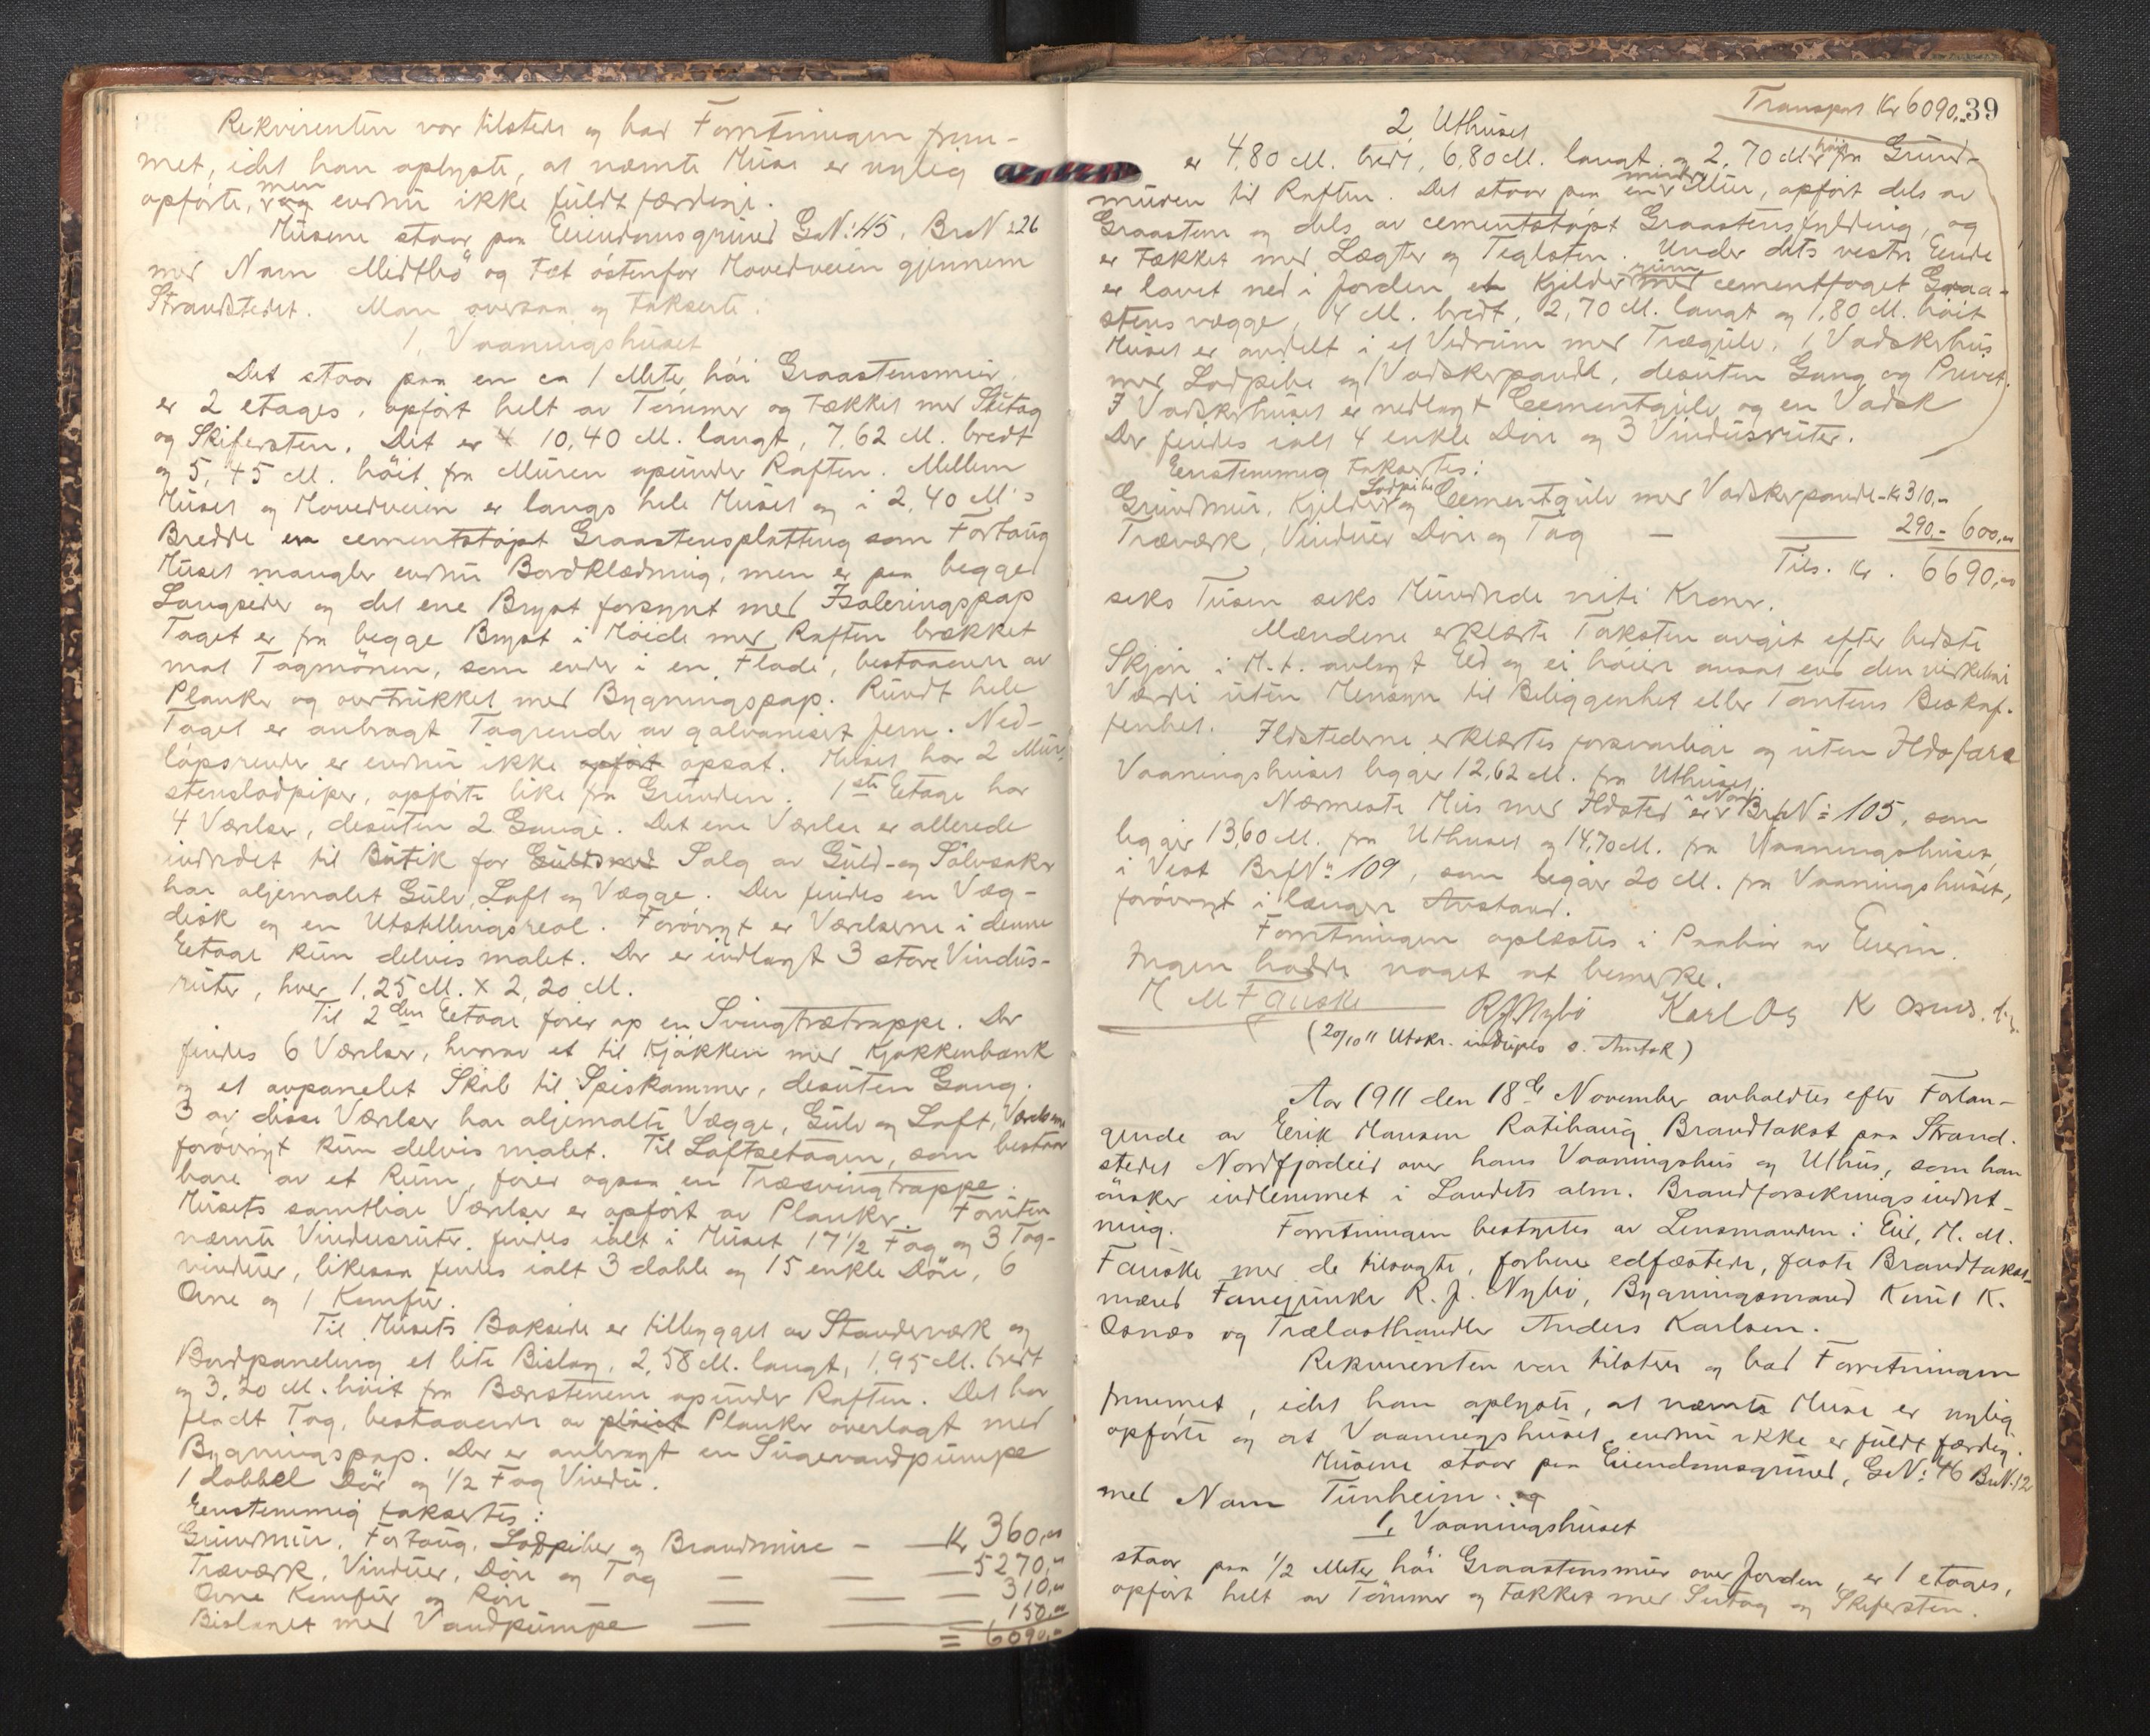 Rekvirenten var tilstede og bad Forretningen frem-
met, idet han oplyste, at nævnte Huse er nylig
opførte, men endnu ikke fuldt færdige.
Husene staar paa Eiendomsgrund G.N: 45, Br.N: 226
med Navn Midtbö og tæt östenfor Hovedveien gjennem
Strandstedet. Man oversaa og takserte:
1, Vaaningshuset
Det staar paa en ca 1 Meter höi Graastensmur,
er 2 etages, opført helt av Tømmer og tækket med Sutag
og Skifersten. Det er 10,40 M. langt, 7,62 M. bredt
og 5,45 M. höit fra Muren opunder Raften. Mellem
Huset og Hovedveien er langs hele Huset og i 2,40 M's
Bredde en cementstøpt Graastensplatting som Fortaug
Huset mangler endnu Bordklædning, men er paa begge
Langsider og det ene Bryst forsynt med Isoleringspap
Taget er fra begge Bryst i Höide med Raften brækket
mot Tagmönen, som ender i en Flade, bestaaende av
Planker og overtrukket med Bygningspap. Rundt hele
Taget er anbragt Tagrender av galvanisert Jern. Ned-
löpsrender er endnu ikke opført opsat. Huset har 2 Mur-
stenslodpiper, opførte like fra Grunden. 1ste Etage har
4 Værelser, desuten 2 Gange. Det ene Værelse er allerede
indredet til Butik for Guldsmed Salg av Guld- og Sölvsaker
har oljemalet Gulv, Loft og Vægge. Der findes en Væg-
disk og en Utstillingsreol. Forövrigt er Værelserne i denne
Etage kun delvis malet. Der er indlagt 3 store Vindus-
ruter, hver 1,25 M. x 2,20 M.
Til 2den Etage fører op en Svingtrætrappe. Der
findes 6 Værelser, hvorav et til Kjøkken med Kjøkkenbænk
og et avpanelet Skab til Spiskammer, desuten Gang.
3 av disse Værelser har oljemalte Vægge, Gulv og Loft, Værelserne
forövrigt kun delvis malet. Til Loftsetagen, som bestaar
bare av et Rum, fører ogsaa en Træsvingtrappe.
Husets samtlige Værelser er opført av Planker. Foruten
nævnte Vindusruter findes ialt i Huset 17 1/2 Fag og 3 Tag-
vinduer, likesaa findes ialt 3 doble og 15 enkle Döre, 6
Ovne og 1 Komfur.
Til Husets Bakside er tilbygget av Standerværk og
Bordpaneling et lite Bislag, 2,58 M. langt, 1,95 M. bredt
og 3,20 M. höit fra Bærestenene opunder Raften. Det har
fladt Tag, bestaaende av Planker overlagt med
Bygningspap. Der er anbragt en Sugevandpumpe
1 dobbel Dör og 1/2 Fag Vindu.
Eenstemmig taksertes:
Grundmur, Fortaug, Lodpiber og Brandmure — Kr 360,00
Træværk, Vinduer, Döre og Tag — — — 5270,00
Ovne Komfur og Rör — — — 310,00
Bislaget med Vandpumpe — — 150,00
= 6090,00
Transport Kr 6090,.. 39
2, Uthuset
er 4,80 M. bredt, 6,80 M. langt og 2,70 M. höit fra Grund-
muren til Raften. Det staar paa en mindre Mur, opført dels av
Graasten og dels av cementstøpt Graastensfyldning, og
er tækket med Lægter og Teglsten. Under dets vestre Ende
er lavet ned i Jorden et Kjelderrum med cementfoget Graa-
stens vægge, 4 M. bredt, 2,70 M. langt og 1,80 M. höit
Huset er avdelt i et Vedrum med Trægulv, 1 Vadskehus
med Lodpibe og 1 Vadskepande, desuten Gang og Privet.
I Vadskehuset er nedlagt Cementgulv og en Vadsk
Der findes ialt 4 enkle Döre og 3 Vindusruter.
Eenstemmig taksertes:
Grundmur, Kjelder Lodpibe og Cementgulv med Vadskepande - Kr 310,-
Træværk, Vinduer Döre og Tag — — 290,- 600,00
Tils. Kr. 6690,00
seks Tusen seks Hundrede niti Kroner.
Mændene erklærte Taksten avgit efter bedste
Skjøn i H.t. avlagt Eed og ei höiere ansat end den virkelige
Værdi uten Hensyn til Beliggenhet eller Tomtens Beskaf-
fenhet. Ildstederne erklærtes forsvarlige og uten Ildsfare
Vaaningshuset ligger 12,62 M. fra Uthuset.
Nærmeste Hus med Ildsted er i Nord Brf.N: 105, som
ligger 13,60 M. fra Uthuset og 14,70 M. fra Vaaningshuset,
i Vest Brf.N: 109, som ligger 20 M. fra Vaaningshuset,
forövrigt i længere Avstand.
Forretningen oplæstes i Paahör av Eieren.
Ingen hadde noget at bemerke.
H M Fauske R J Nybö Karl Os K Osnes
(20/10 11 Utskr. indsipes s. Amtsk)
Aar 1911 den 18de November avholdtes efter Forlan-
gende av Eerik Hansen Ratihaug Brandtakst paa Strand-
stedet Nordfjordeid over hans Vaaningshus og Uthus, som han
önsker indlemmet i Landets alm. Brandforsikringsindret-
ning. Forretningen bestyrtes av Lensmanden i Eid, H. M.
Fauske med de tilsagte, forhen edfæstede, faste Brandtakst-
mænd Fanejunker R. J. Nybö, Bygningsmand Knut K.
Osnæs og Trælasthandler Anders Karlsen.
Rekvirenten var tilstede og bad Forretningen
fremmet, idet han oplyste, at nævnte Huse er nylig
opførte og at Vaaningshuset endnu ikke er fuldt færdig.
Husene staar paa Eiendomsgrund, G.N: 46 Br.N: 12
med Navn Tunheim. og
1, Vaaningshuset
staar paa 1/2 Meter höi Graastensmur over Jorden, er 1 etages,
opført helt av Tömmer og tækket med Sutag og Skifersten.